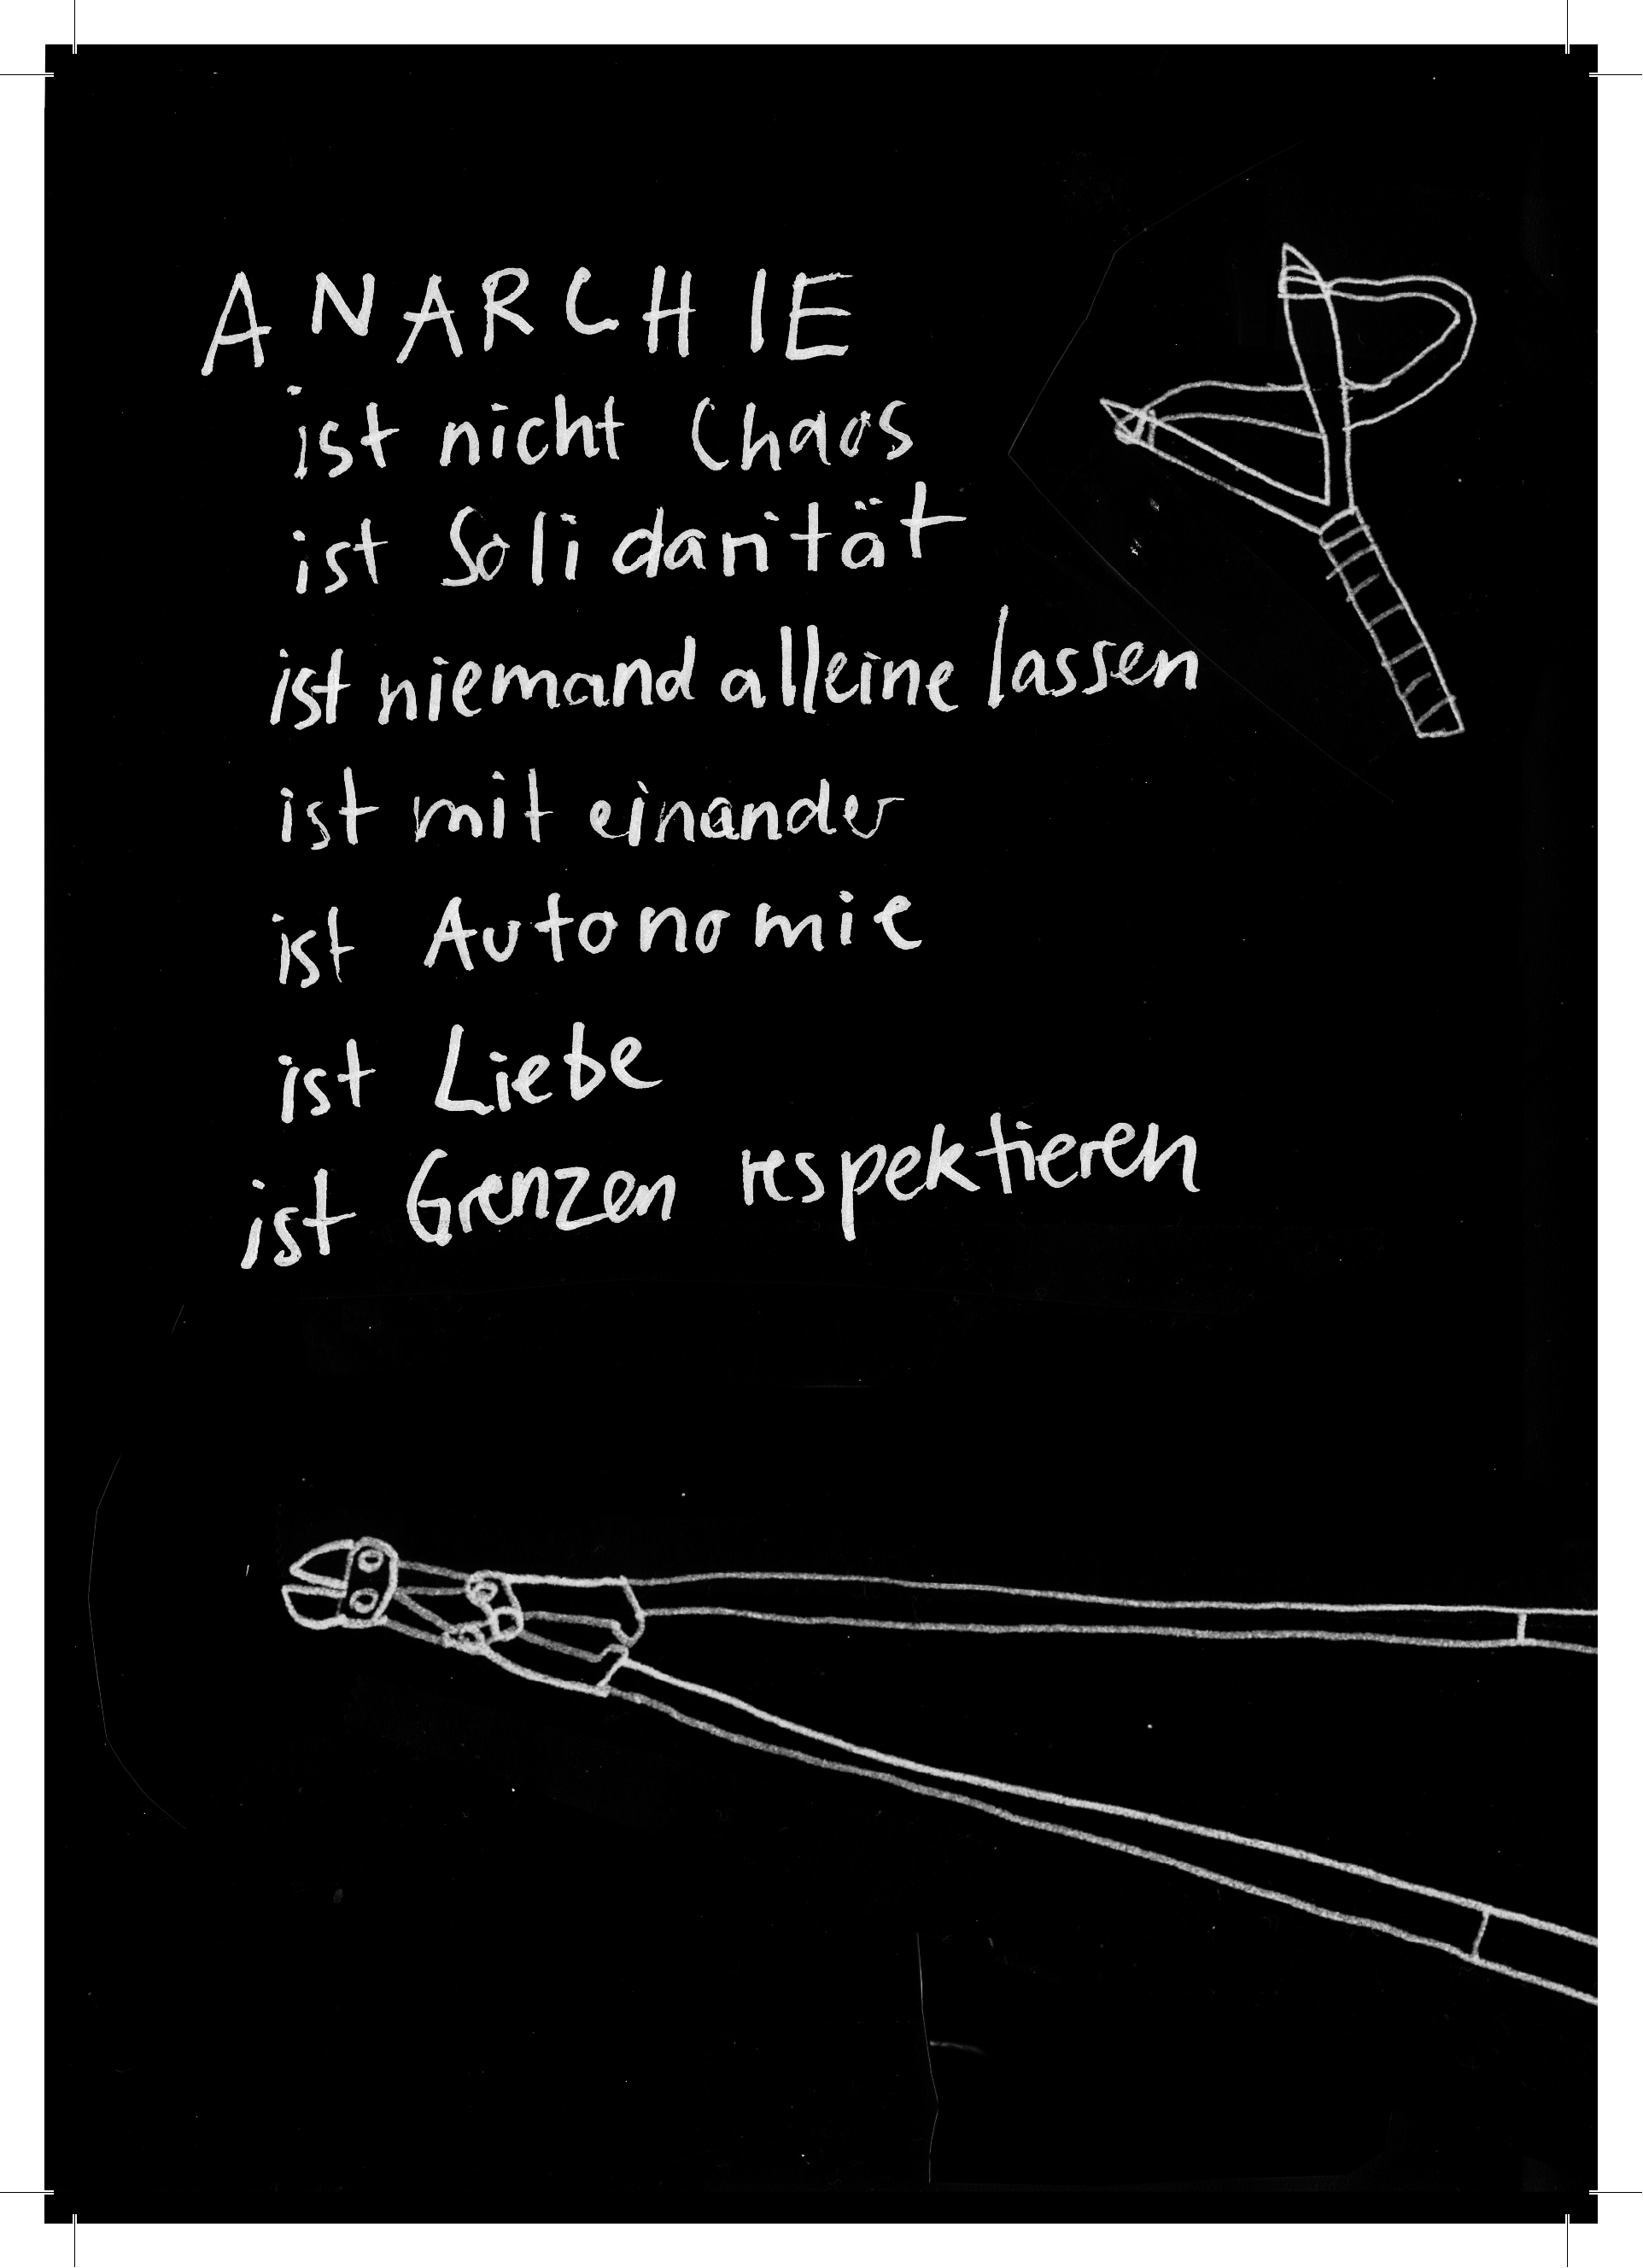 ANARCHIE
ist nicht Chaos
ist Solidarität
ist niemand alleine lassen
ist mit einander
ist Autonomie
ist Liebe
ist Grenzen respektieren